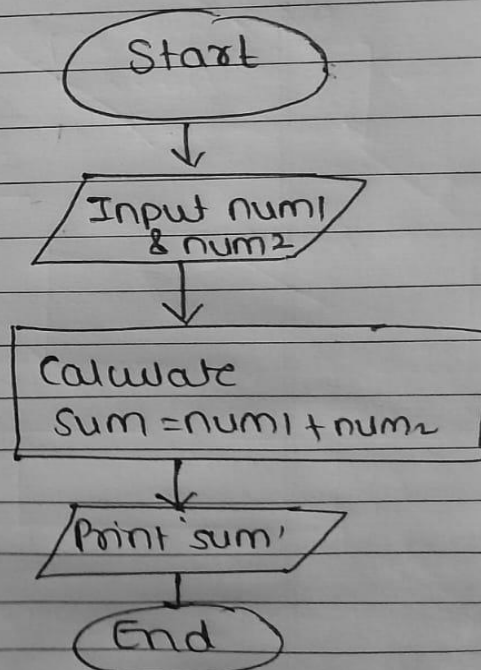 Start
Input num1
& num2
Calculate
sum = num1 + num2
Print 'sum'
End